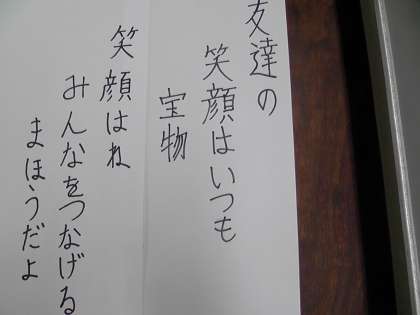 友達の
笑顔はいつも
宝物
笑顔はね
みんなをつなげる
まほうだよ